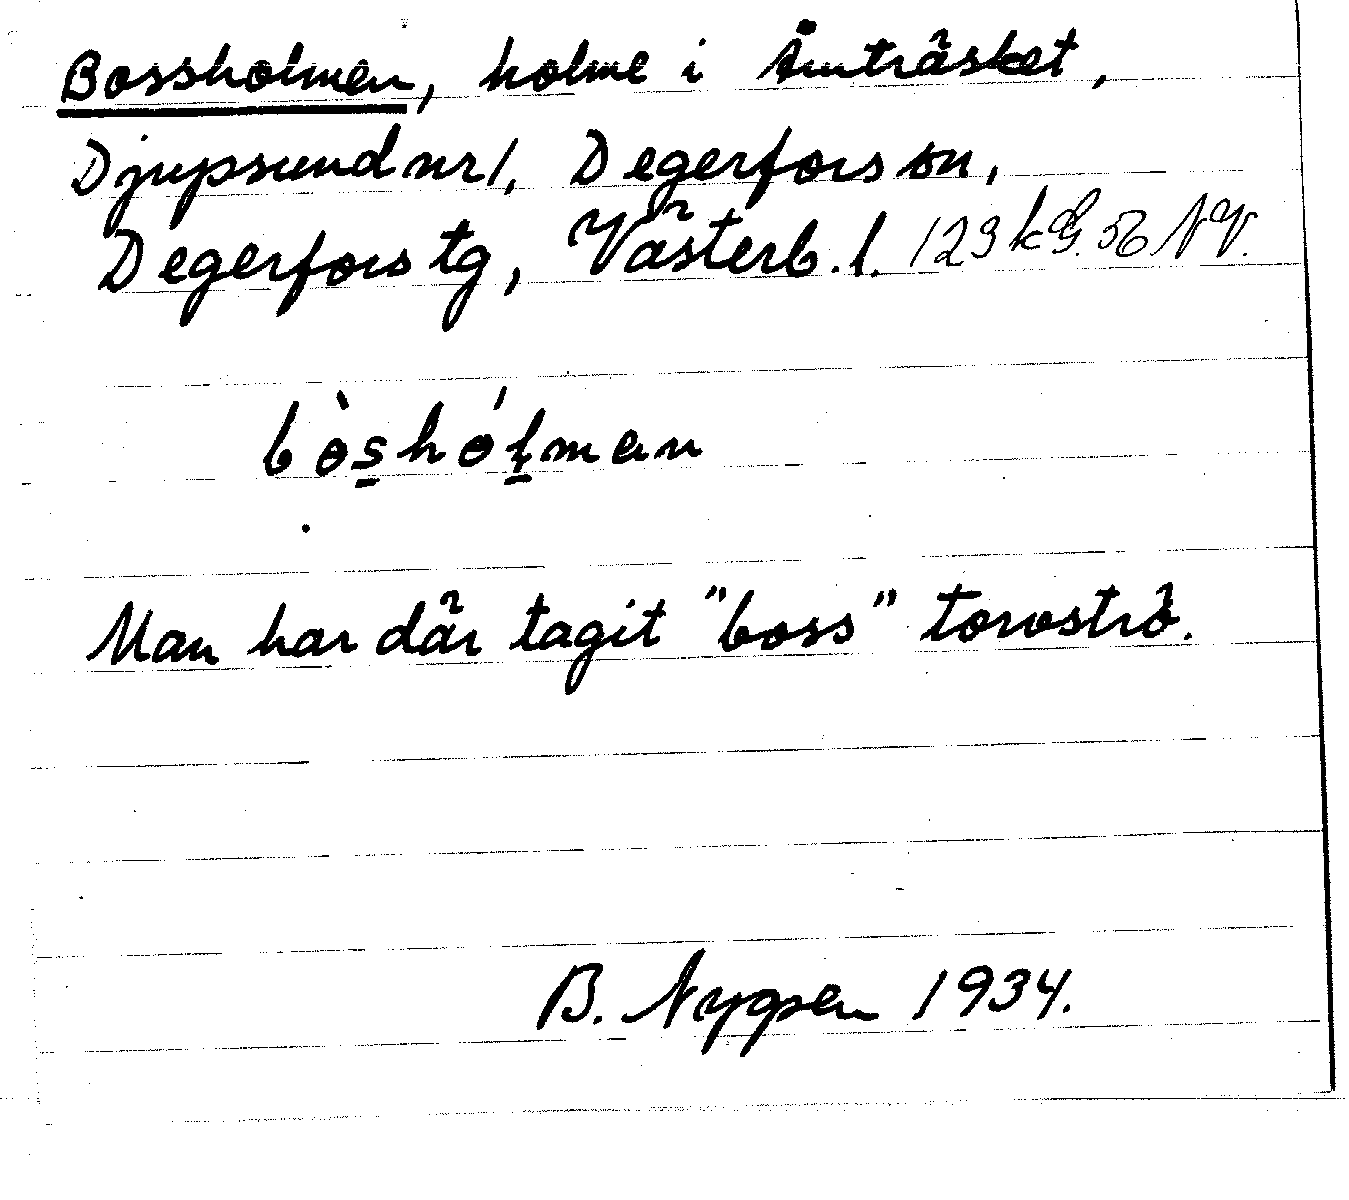 Bossholmen, holme i Åmträsket,
Djupsund nr 1, Degerfors sn,
Degerfors tg, Västerb. l. 123 kG. 56 NV.
bòs̠hóḻman
Man har där tagit "boss" torvströ.
B. 1934.